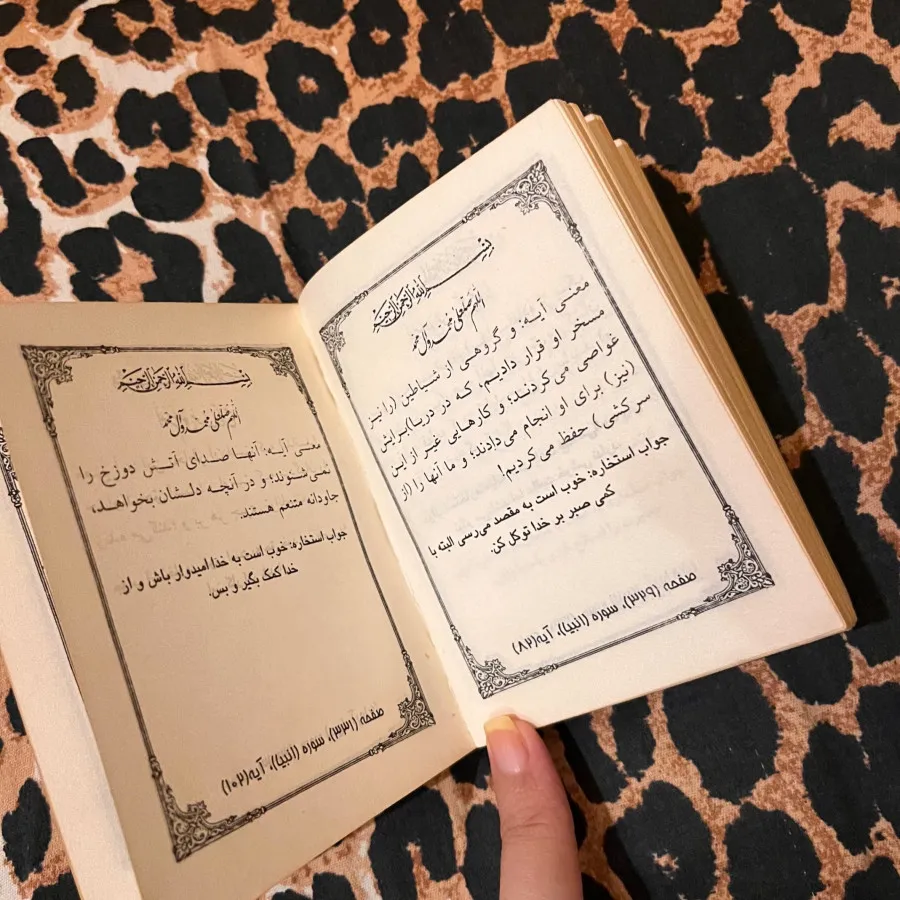 بسم الله الرحمن الرحیم
اللهم صل علی محمد و آل محمد
معنی آیه: و گروهی از شیاطین (را نیز
مسخر او قرار دادیم، که در دریا)برایش
غواصی می‌کردند؛ و کارهایی غیر از این
(نیز) برای او انجام می‌دادند؛ و ما آنها را (از
سرکشی) حفظ می‌کردیم!
جواب استخاره: خوب است به مقصد می‌رسی البته با
کمی صبر بر خدا توکل کن.
صفحه (۳۲۹)، سوره (انبیا)، آیه(۸۲)
بسم الله الرحمن الرحیم
اللهم صل علی محمد و آل محمد
معنی آیه: آنها صدای آتش دوزخ را
نمی‌شنوند؛ و در آنچه دلشان بخواهد،
جاودانه متنعم هستند.
جواب استخاره: خوب است به خدا امیدوار باش و از
خدا کمک بگیر و بس.
صفحه (۳۳۱)، سوره (انبیا)، آیه(۱۰۲)